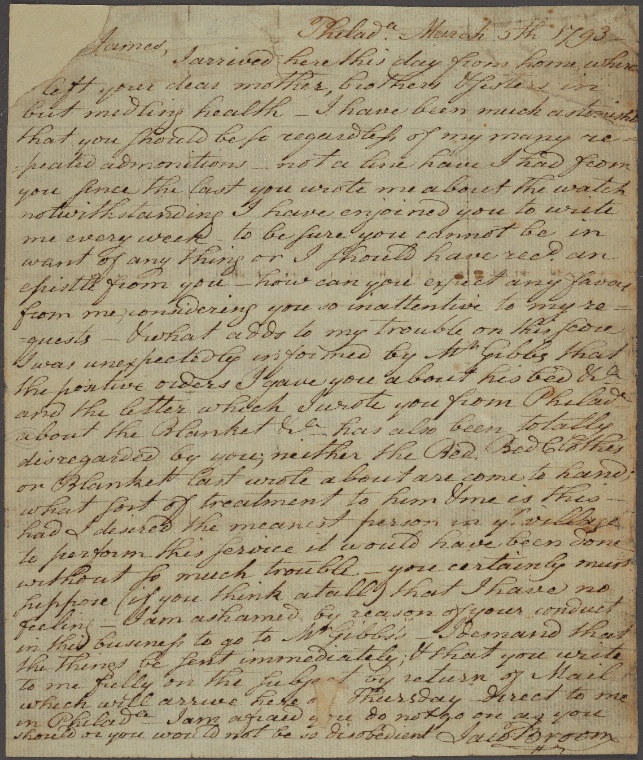 Philada. March 5th 1793
James,
I arrived here this day from home, where
left your dear mother, brothers & sisters in
but midling health – I have been much astonish
that you should be so regardless of my many re-
-peated admonitions – not a line have I had from
you since the last you wrote me about the watch
notwithstanding I have enjoined you to write
me every week, to be sure you cannot be in
want of any thing or I should have recd. an
epistle from you – how can you expect any favor
from me, considering you so inattentive to my re-
-quests – & what adds to my trouble on this score
I was unexpectedly informed by Mr. Gibbs that
the positive orders I gave you about his bed &ca.
and the letter which I wrote you from Philada.
about the Blanket &ca. has also been totally
disregarded by you, neither the Bed, Bed Clothes
or Blankett last wrote about are come to hand,
what sort of treatment to him & me is this –
had I desired the meanest person in ye. village
to perform this service it would have been done
without so much trouble – you certainly must
suppose (if you think at all) that I have no
feeling – I am ashamed by reason of your conduct
in this business to go to Mr Gibbs's – I demand that
the things be sent immediately, & that you write
to me fully on the subject by return of Mail
which will arrive here on Thursday direct to me
in Philada. I am afraid you do not go on as you
should or you would not be so disobedient Jacob Broom